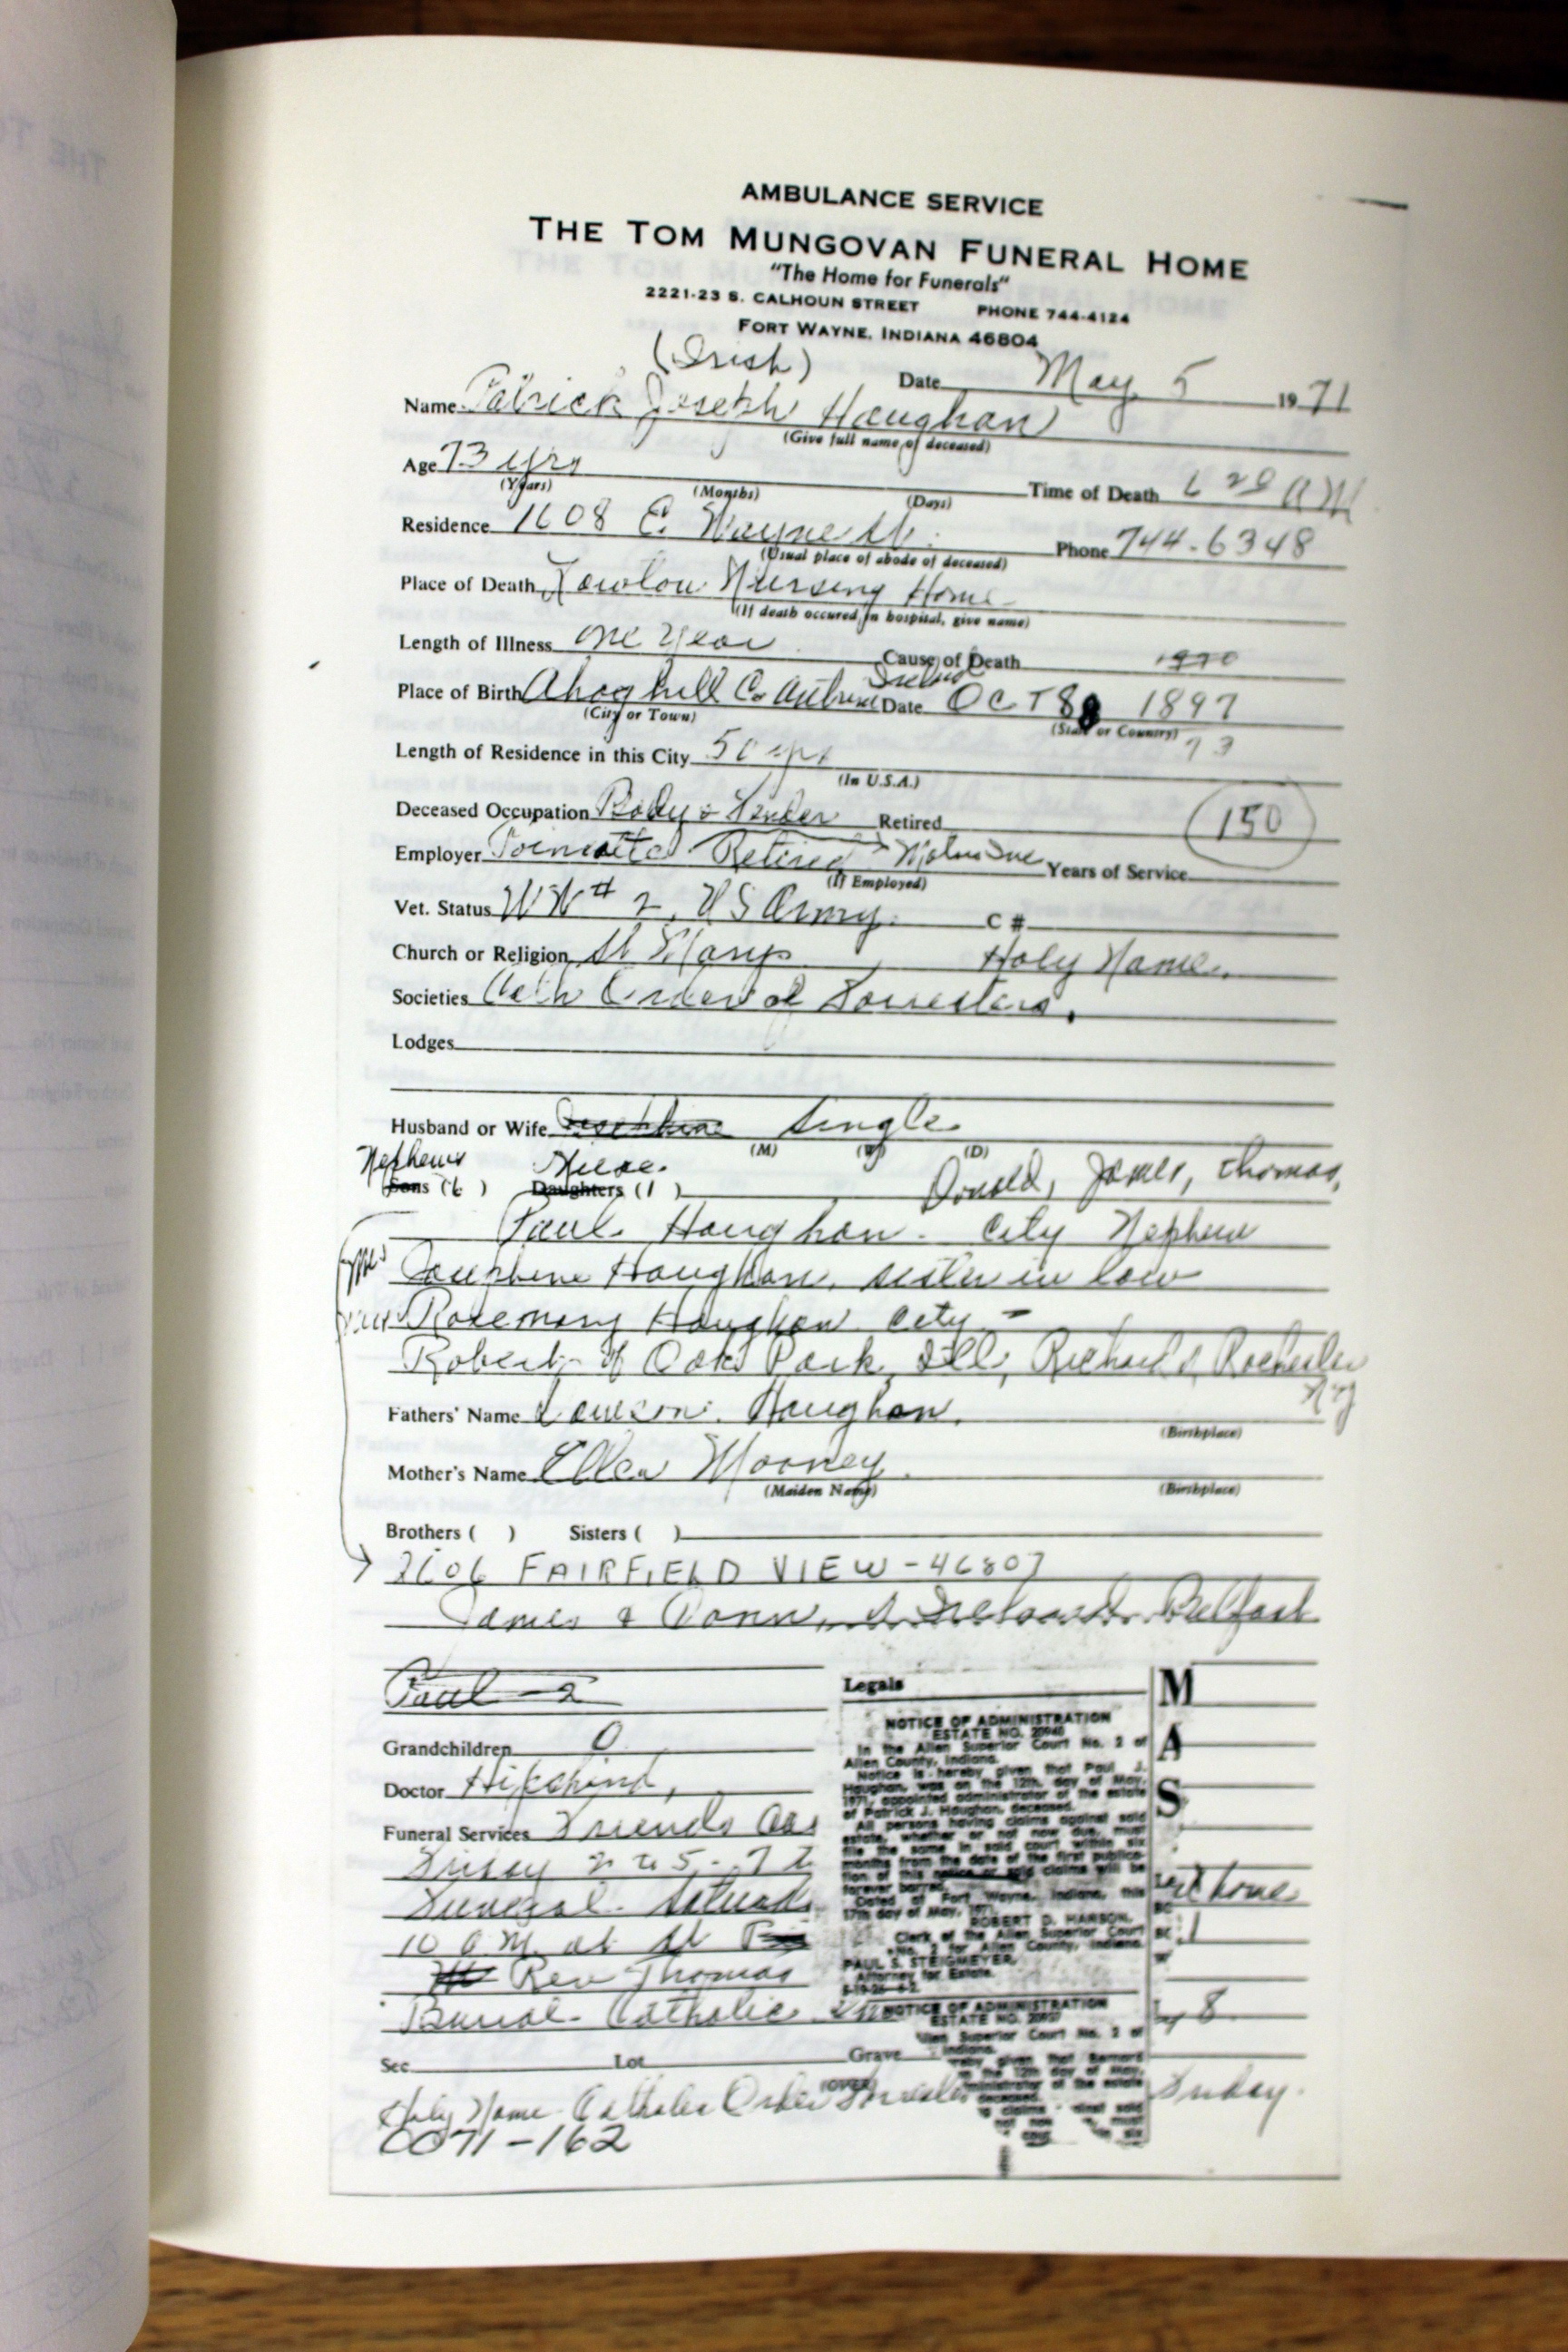 AMBULANCE SERVICE
THE TOM MUNGOVAN FUNERAL HOME
"The Home for Funerals"
2221-23 S. CALHOUN STREET PHONE 744-4124
FORT WAYNE, INDIANA 46804
(Irish)
Date May 5 1971
Name Patrick Joseph Haughan
(Give full name of deceased)
Age 73 yrs Time of Death 6 20 AM
(Years) (Months) (Days)
Residence 1608 E. Wayne St. Phone 744-6348
(Usual place of abode of deceased)
Place of Death Nursing Home
(If death occured in hospital, give name)
Length of Illness one year Cause of Death 1970
Place of Birth Ahoghill Co Antrim Ireland Date OCT 8 1897
(City or Town) (State or Country)
73
Length of Residence in this City 50 yrs
(In U.S.A.)
Deceased Occupation Body & Fender Retired 150
Employer Retired Years of Service
(If Employed)
Vet. Status WW # 2, US Army. C #
Church or Religion St Marys Holy Name.
Societies Cath Order of Forresters.
Lodges
Husband or Wife Josephine Single
(M) (W) (D)
Nephews Niece.
Sons (6 ) Daughters (1 ) Donald, James, Thomas,
Paul Haughan. City Nephew
Josephine Haughan, sister in law
Rosemary Haughan City -
Robert of Oak Park, Ill, Richard, Rochester
NY
Fathers' Name Haughan.
(Birthplace)
Mother's Name Ellen Mooney.
(Maiden Name) (Birthplace)
Brothers ( ) Sisters ( )
2606 FAIRFIELD VIEW - 46807
James & Ireland. Belfast
Paul - 2
Legals
M
A
S
NOTICE OF ADMINISTRATION
ESTATE NO.
In the Allen Superior Court No. 2 of
Allen County, Indiana.
Notice is hereby given that Paul J.
Haughan, was on the 12th. day of May,
1971, appointed administrator of the estate
of Patrick J. Haughan, deceased.
All persons having claims against said
estate, whether or not now due, must
file the same in said court within six
months from the date of the first publica-
tion of this notice or said claims will be
forever barred.
Dated at Fort Wayne, Indiana, this
17th day of May, 1971.
ROBERT D. HARSON,
Clerk of the Allen Superior Court
No. 2 for Allen County, Indiana.
PAUL S. STEIGMEYER,
Attorney for Estate.
NOTICE OF ADMINISTRATION
ESTATE NO.
Allen Superior Court No. 2 of
Indiana.
Grandchildren 0
Doctor
Funeral Services Friends
2 to 5 - 7
Funeral. home
10 A.M. at St
Rev Thomas
Burial - Catholic
8
Sec Lot Grave
(OVER)
Holy Name Catholic Order Friday.
0071-162